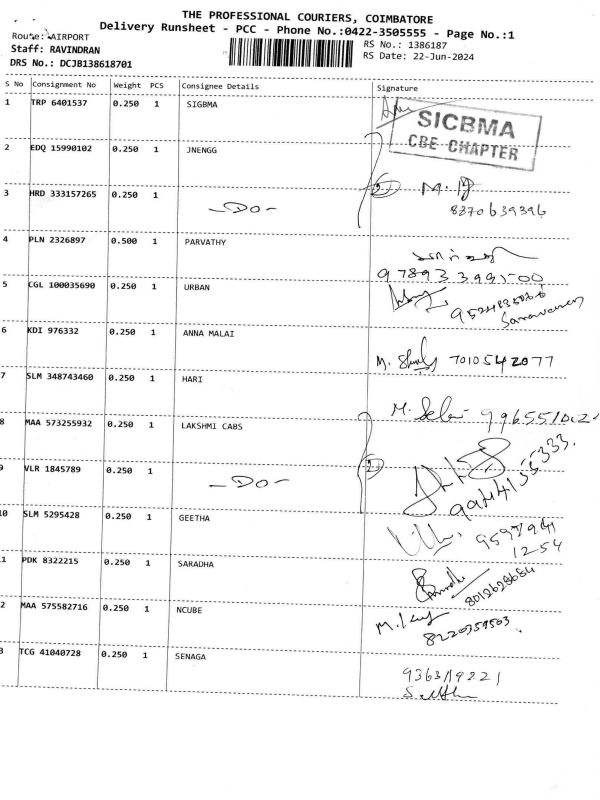 THE PROFESSIONAL COURIERS, COIMBATORE
Delivery Runsheet - PCC - Phone No.:0422-3505555 - Page No.:1
Route: AIRPORT
RS No.: 1386187
Staff: RAVINDRAN
RS Date: 22-Jun-2024
DRS No.: DCJB138618701
S No Consignment No Weight PCS Consignee Details Signature
1 TRP 6401537 0.250 1 SIGBMA
SICBMA
CBE CHAPTER
2 EDQ 15990102 0.250 1 JNENGG
3 HRD 333157265 0.250 1 -DO- 2
8870639396
4 PLN 2326897 0.500 1 PARVATHY
5 CGL 100035690 0.250 1 URBAN
Saravanan
6 KDI 976332 0.250 1 ANNA MALAI
7010542077
7 SLM 348743460 0.250 1 HARI
M. Selvi
8 MAA 573255932 0.250 1 LAKSHMI CABS
9 VLR 1845789 0.250 1 -DO- 2
9944155333.
10 SLM 5295428 0.250 1 GEETHA
12 54
11 PDK 8322215 0.250 1 SARADHA
2 MAA 575582716 0.250 1 NCUBE
3 TCG 41040728 0.250 1 SENAGA
9363119221